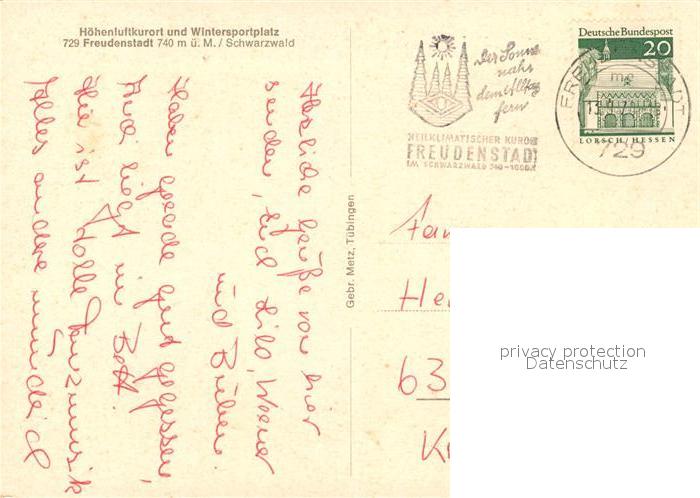 Höhenluftkurort und Wintersportplatz
729 Freudenstadt 740 m ü. M. / Schwarzwald
Der Sonne
nahe
dem Alltag
fern
HEILKLIMATISCHER KURORT
FREUDENSTADT
IM SCHWARZWALD 740-1000M
FREUDENSTADT
me
729
Deutsche Bundespost
20
LORSCH/HESSEN
Gebr. Metz, Tübingen
Herzliche Grüße von hier
senden, Euch Lilo, Werner
und
Haben gerade gut gegessen,
liegt im Bett.
Hier ist tolle Tanzmusik
Alles andere mündlich
Fam
He
63
K
privacy protection
Datenschutz